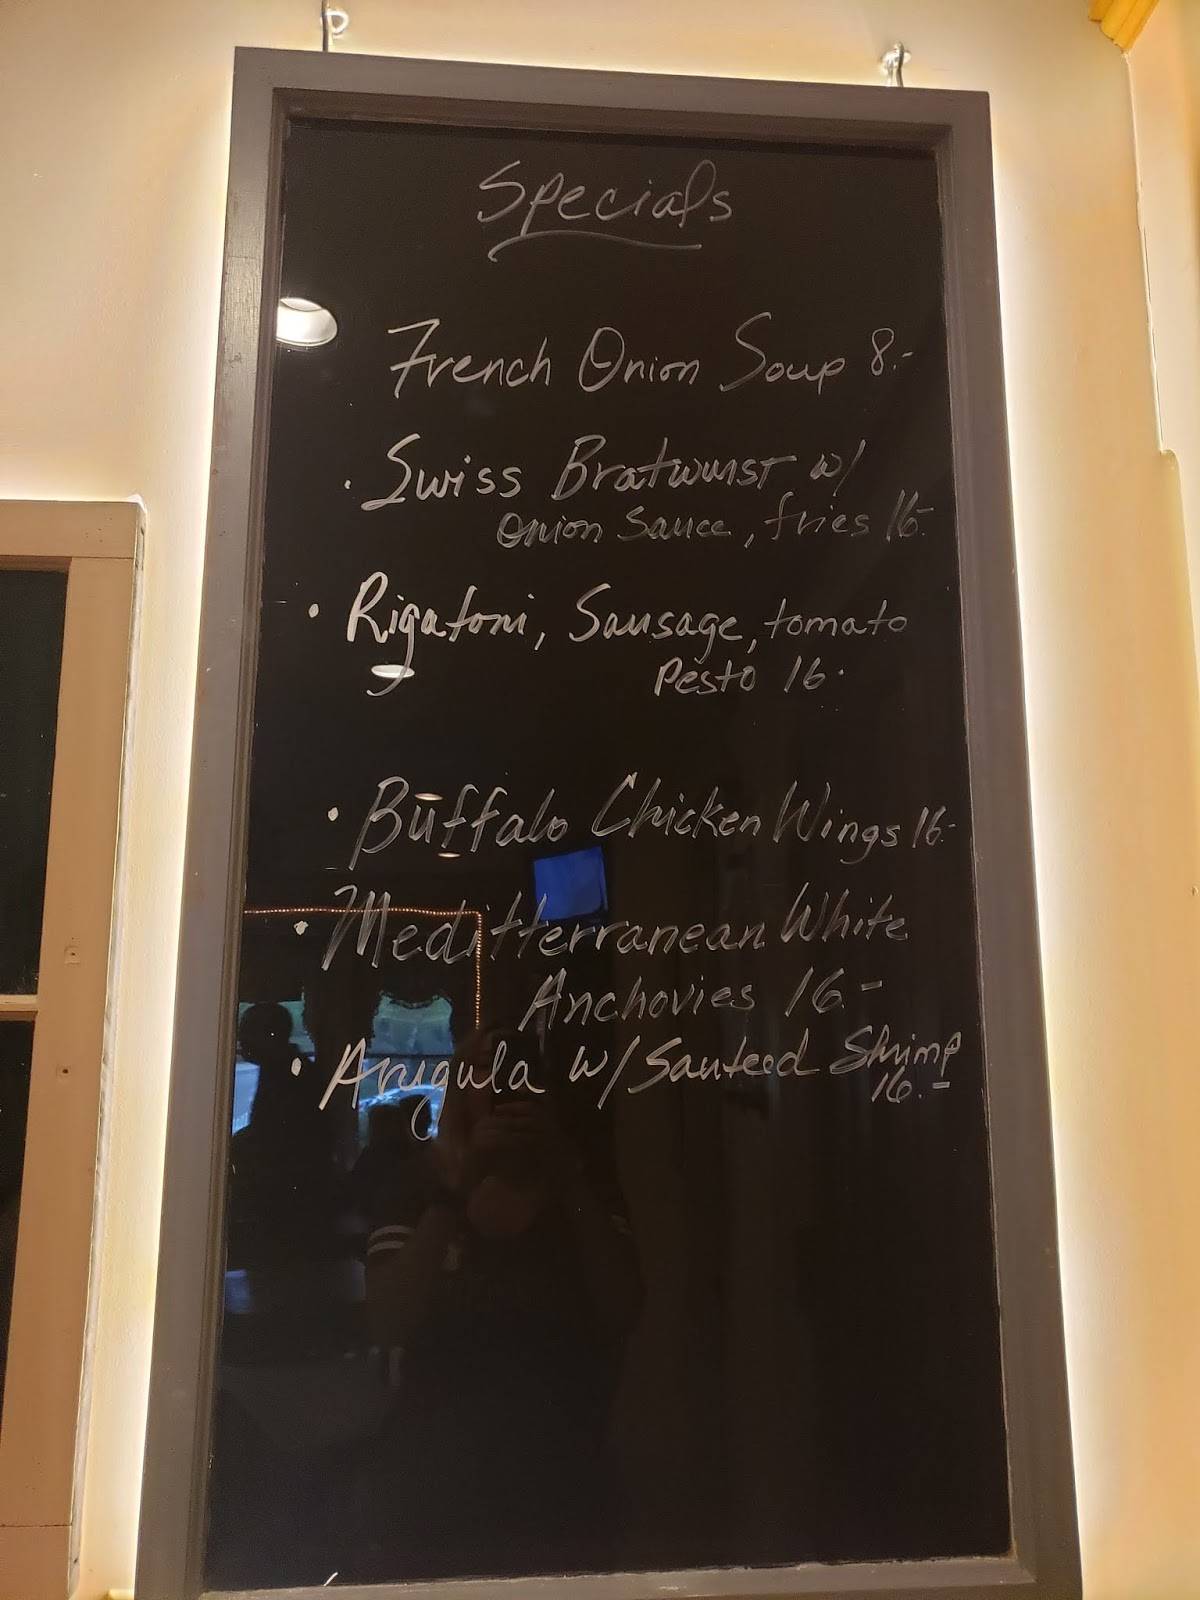 Specials
French Onion Soup 8.-
· Swiss Bratwurst w/
onion sauce, fries 16-
· Rigatoni, Sausage, tomato
Pesto 16.
· Buffalo Chicken Wings 16-
· Meditterranean White
Anchovies 16.-
· Arugula w/ Sauteed Shrimp
16.-